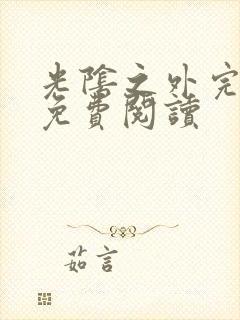 光陰之外完
免費閱讀
茹言